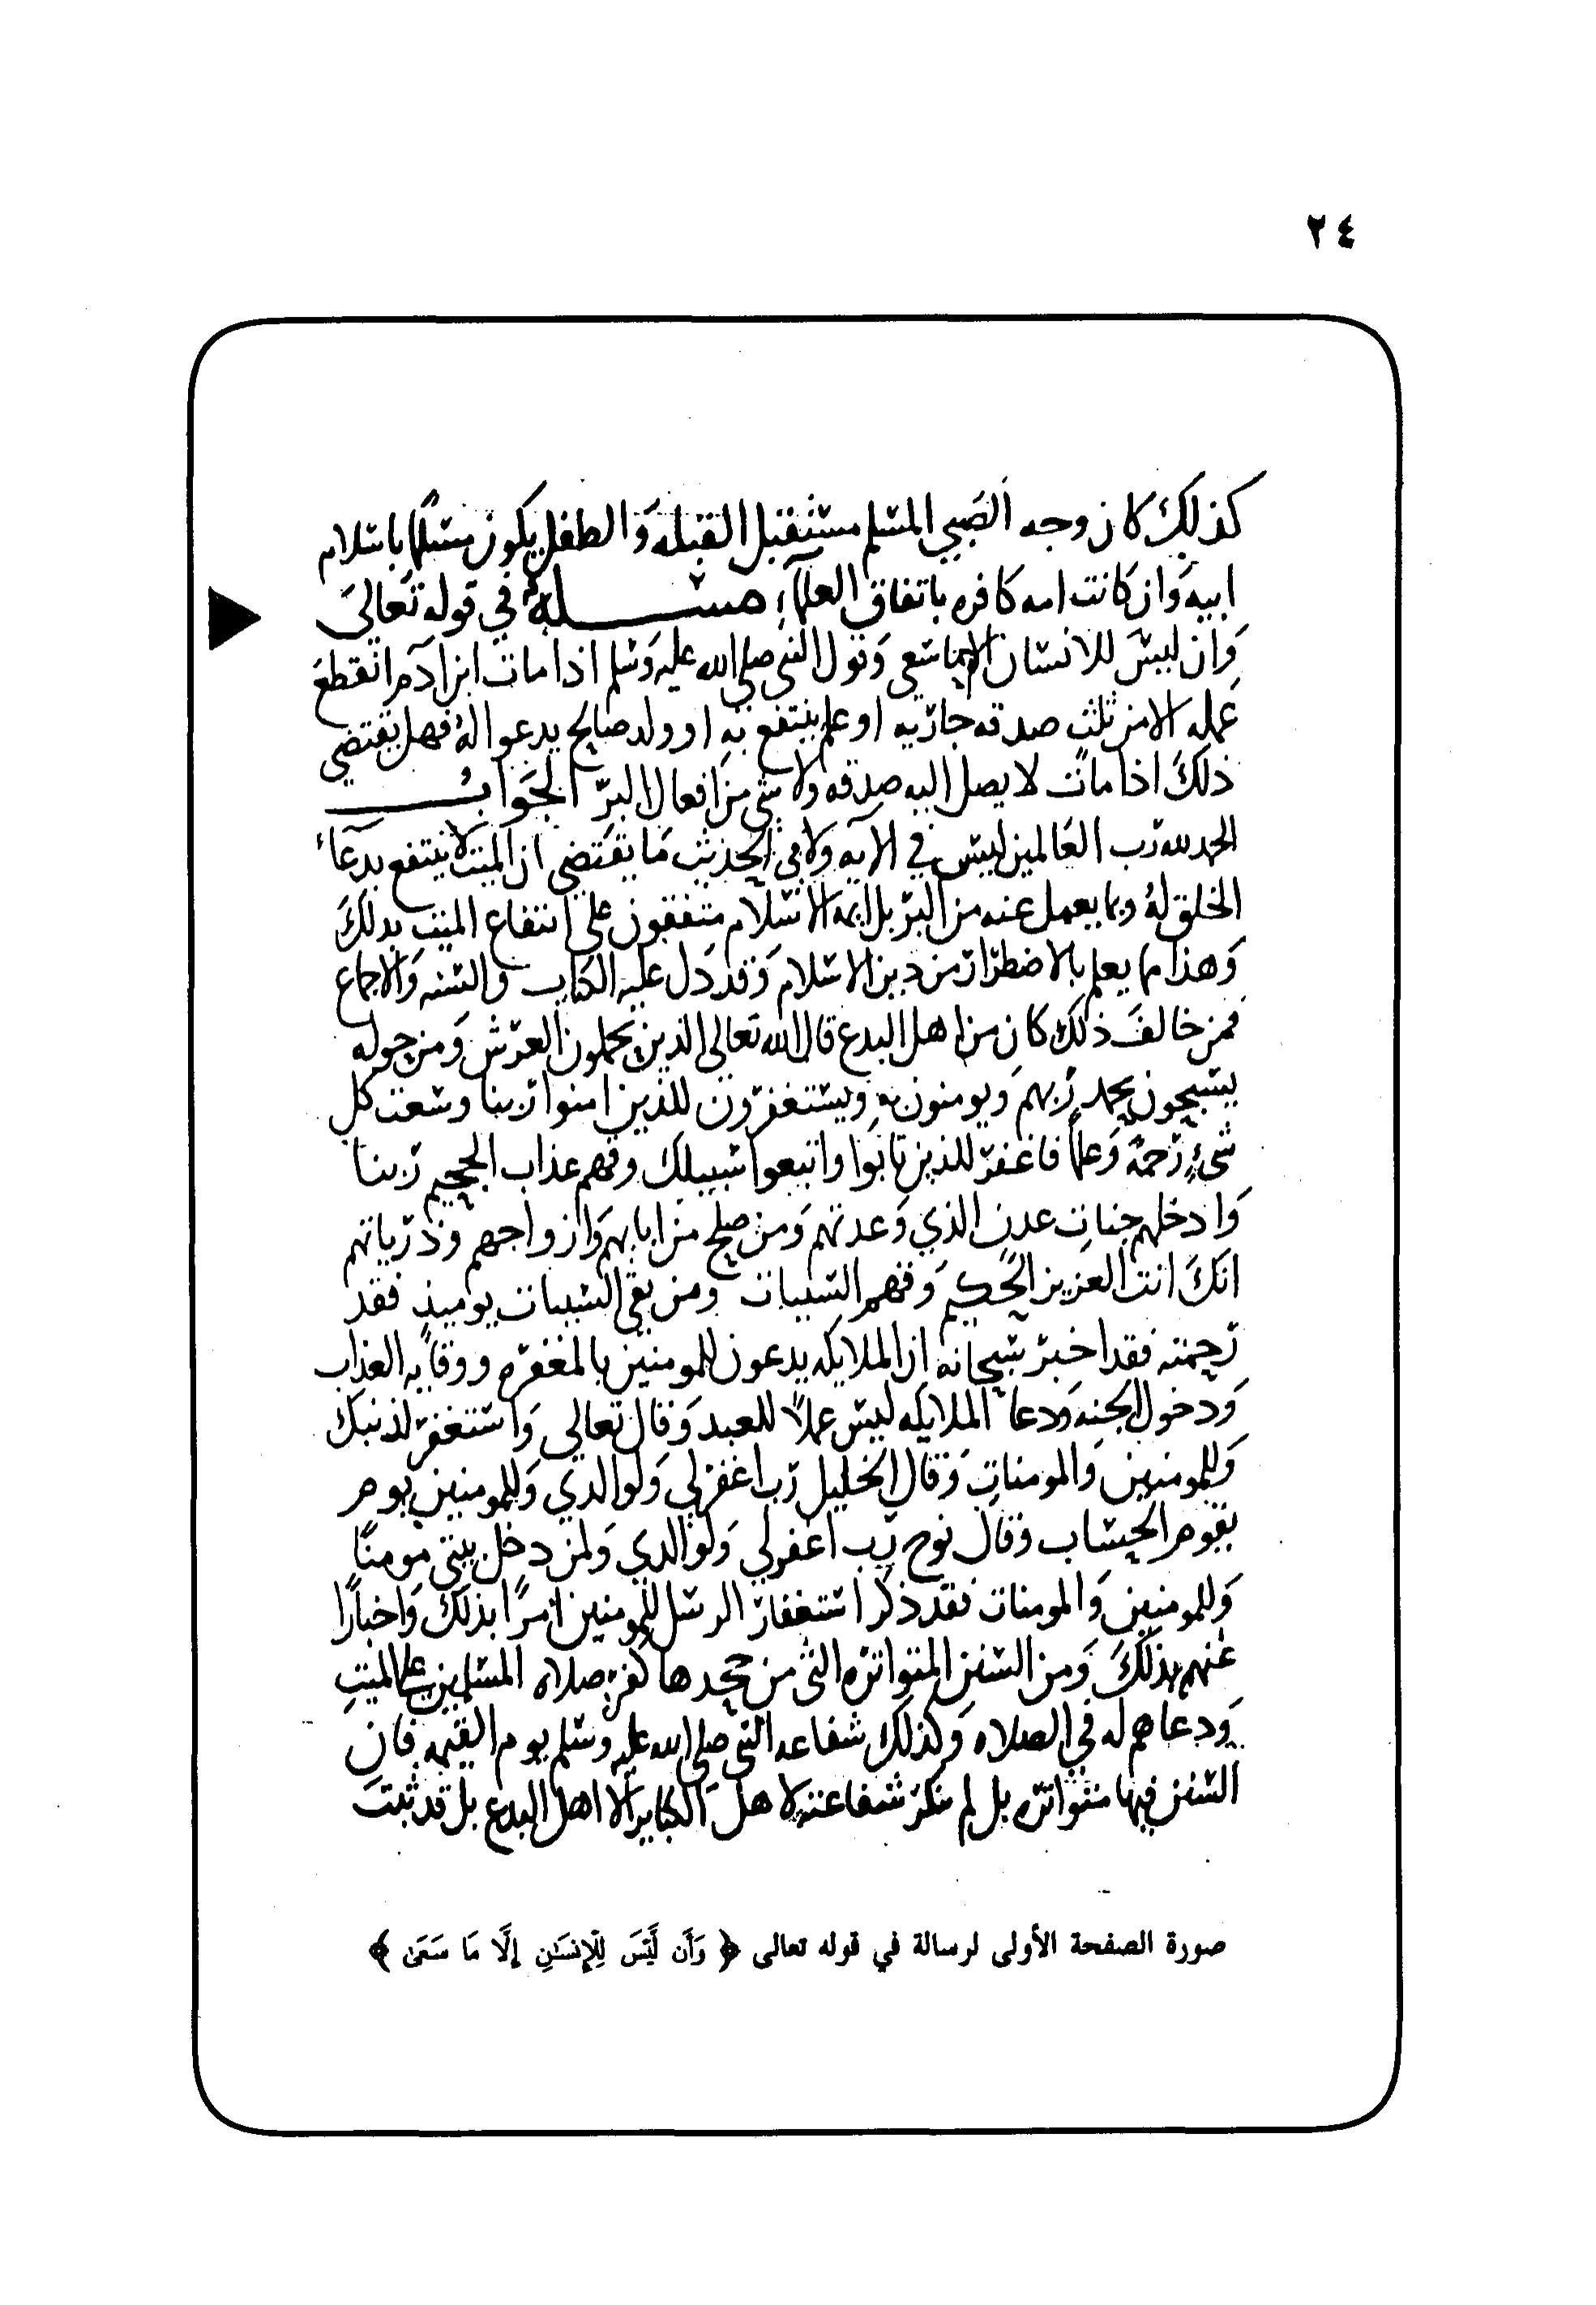 ٢٤
كذلك كان وجه الصبي المسلم مستقبل القبله والطفل يكون مسلما باسلام
ابيه وان كانت امه كافره باتفاق العلماء مسله في قوله تعالى
وان ليس للانسان الا ما سعى وقول النبي صلى الله عليه وسلم اذا مات ابن ادم انقطع
عمله الا من ثلث صدقه جاريه او علم ينتفع به او ولد صالح يدعوا له فهل يقتضي
ذلك اذا مات لا يصل اليه صدقه ولا شي من افعال البر الجواب
الحمد لله رب العالمين ليس في الآيه ولا في الحديث ما يقتضي ان الميت لا ينتفع بدعآء
الخلق له وبما يعمل عنه من البر بل ايمه الاسلام متفقون على انتفاع الميت بذلك
وهذا مما يعلم بالاضطرار من دين الاسلام وقد دل عليه الكتاب والسنه والاجماع
فمن خالف ذلك كان من اهل البدع قال الله تعالى الذين يحملون العرش ومن حوله
يسبحون بحمد ربهم ويومنون به ويستغفرون للذين امنوا ربنا وسعت كل
شيء رحمة وعلما فاغفر للذين تابوا واتبعوا سبيلك وقهم عذاب الجحيم ربنا
وادخلهم جنات عدن الذي وعدتهم ومن صلح من ابايهم وازواجهم وذرياتهم
انك انت العزيز الحكيم وقهم السيات ومن تقي السيات يوميذ فقد
رحمته فقد اخبر سبحانه ان الملايكه يدعون للمومنين بالمغفره ووقايه العذاب
ودخول الجنه ودعا الملايكه ليس عملا للعبد وقال تعالى واستغفر لذنبك
وللمومنين والمومنات وقال الخليل رب اغفر لي ولوالدي وللمومنين يوم
يقوم الحساب وقال نوح رب اغفر لي ولوالدي ولمن دخل بيتي مومنا
وللمومنين والمومنات فقد ذكر استغفار الرسل للمومنين امرا بذلك واخبارا
عنهم بذلك ومن السنن المتواتره التي من جحدها كفر صلاه المسلمين على الميت
ودعاهم له في الصلاه وكذلك شفاعه النبي صلى الله عليه وسلم يوم القيمه فان
السنن فيها متواتره بل لم ينكر شفاعته لاهل الكباير الا اهل البدع بل قد ثبت
صورة الصفحة الأولى لرسالة في قوله تعالى ﴿ وَأَن لَّيْسَ لِلْإِنسَـٰنِ إِلَّا مَا سَعَىٰ ﴾